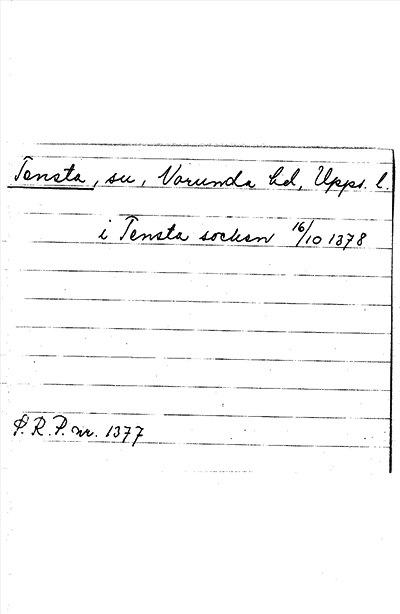 Tensta, su, Norunda hd, Upps. l.
i Tensta socken 16/10 1378
S.R.P. nr. 1377